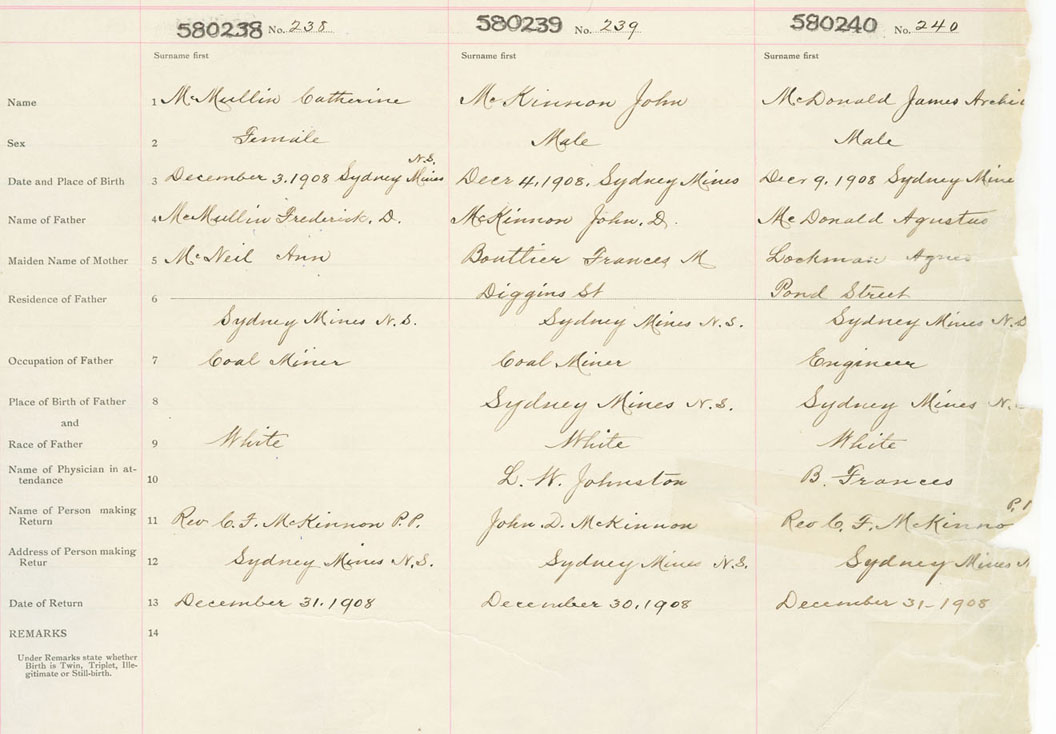 580238 No. 238 580239 No. 239 580240 No. 240
Surname first Surname first Surname first
Name 1 McMullin Catherine McKinnon John McDonald James
Sex 2 Female Male Male
N.S.
Date and Place of Birth 3 December 3, 1908 Sydney Mines Decr 4, 1908. Sydney Mines Decr 9, 1908 Sydney Mine
Name of Father 4 McMullin Frederick. D. McKinnon John. D. McDonald Agustus
Maiden Name of Mother 5 McNeil Ann Boutlier Frances M Lockman Agnes
Diggins St Pond Street
Residence of Father 6
Sydney Mines N.S. Sydney Mines N.S. Sydney Mines N.S
Occupation of Father 7 Coal Miner Coal Miner Engineer
Place of Birth of Father 8 Sydney Mines N.S. Sydney Mines N.
and
Race of Father 9 White White White
Name of Physician in at-
tendance 10 L. W. Johnston B. Frances
Name of Person making P.
Return 11 Rev C. F. McKinnon P.P. John D. McKinnon Rev C. F. McKinno
Address of Person making
Retur 12 Sydney Mines N.S. Sydney Mines N.S. Sydney Mines N
Date of Return 13 December 31. 1908 December 30, 1908 December 31-1908
REMARKS 14
Under Remarks state whether
Birth is Twin, Triplet, Ille-
gitimate or Still-birth.